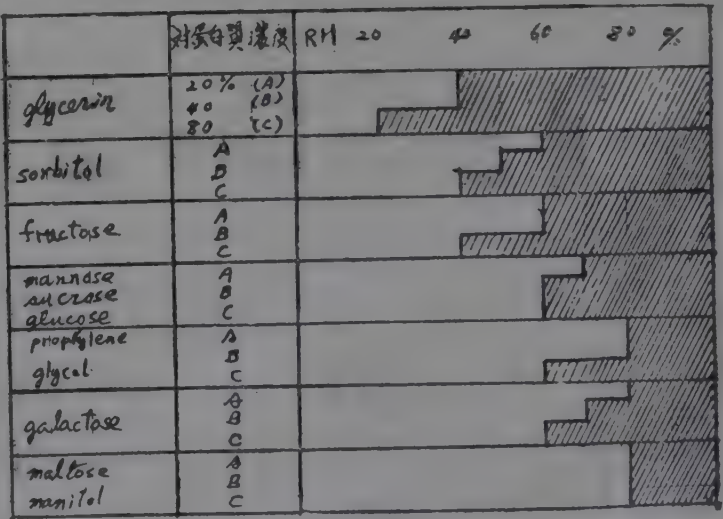 対蛋白質濃度 RH 20 40 60 80 %
glycerin
20% (A)
40 (B)
80 (C)
sorbital
A
B
C
fructose
A
B
C
mannose
sucrose
glucose
A
B
C
prophylene
glycal
A
B
C
galactose
A
B
C
maltose
manitol
A
B
C